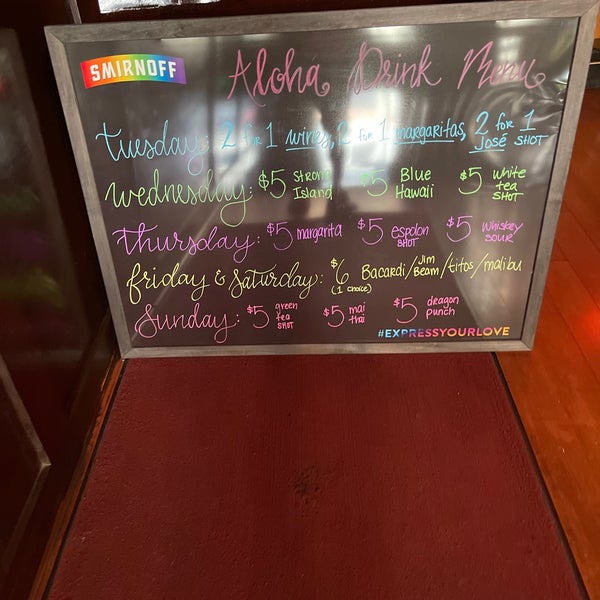 SMIRNOFF
Aloha Drink Menu
tuesday: 2 for 1 wines, 2 for 1 margaritas, 2 for 1 José SHOT
wednesday: $5 Strong Island $5 Blue Hawaii $5 white tea SHOT
thursday: $5 margarita $5 espolon SHOT $5 whiskey sour
friday & saturday: $6 (1 choice) Bacardi/Jim Beam/titos/malibu
Sunday: $5 green tea SHOT $5 mai thai $5 dragon punch
#EXPRESSYOURLOVE